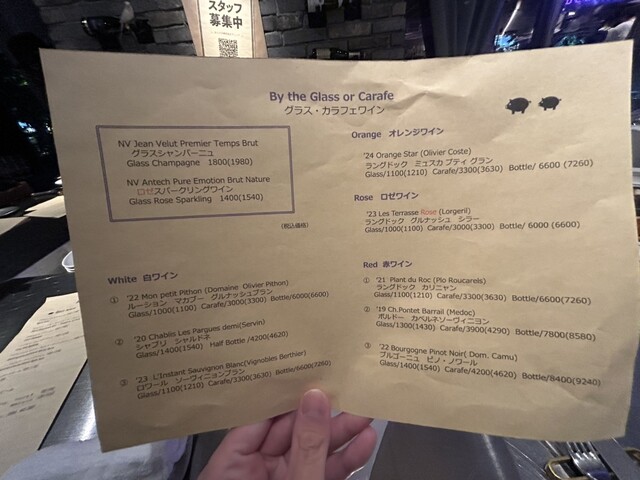 スタッフ
募集中
By the Glass or Carafe
グラス・カラフェワイン
NV Jean Velut Premier Temps Brut
グラスシャンパーニュ
Glass Champagne 1800(1980)
NV Antech Pure Emotion Brut Nature
ロゼスパークリングワイン
Glass Rose Sparkling 1400(1540)
(税込価格)
White 白ワイン
① '22 Mon petit Pithon (Domaine Olivier Pithon)
ルーション マカブー グルナッシュブラン
Glass/1000(1100) Carafe/3000(3300) Bottle/6000(6600)
② '20 Chablis Les Pargues demi(Servin)
シャブリ シャルドネ
Glass/1400(1540) Half Bottle /4200(4620)
③ '23 L'Instant Sauvignon Blanc(Vignobles Berthier)
ロワール ソーヴィニョンブラン
Glass/1100(1210) Carafe/3300(3630) Bottle/6600(7260)
Orange オレンジワイン
'24 Orange Star (Olivier Coste)
ラングドック ミュスカ プティ グラン
Glass/1100(1210) Carafe/3300(3630) Bottle/ 6600 (7260)
Rose ロゼワイン
'23 Les Terrasse Rose (Lorgeril)
ラングドック グルナッシュ シラー
Glass/1000(1100) Carafe/3000(3300) Bottle/ 6000 (6600)
Red 赤ワイン
① '21 Plant du Roc (Plo Roucarels)
ラングドック カリニャン
Glass/1100(1210) Carafe/3300(3630) Bottle/6600(7260)
② '19 Ch.Pontet Barrail (Medoc)
ボルドー カベルネソーヴィニヨン
Glass/1300(1430) Carafe/3900(4290) Bottle/7800(8580)
③ '22 Bourgogne Pinot Noir( Dom. Camu)
ブルゴーニュ ピノ・ノワール
Glass/1400(1540) Carafe/4200(4620) Bottle/8400(9240)